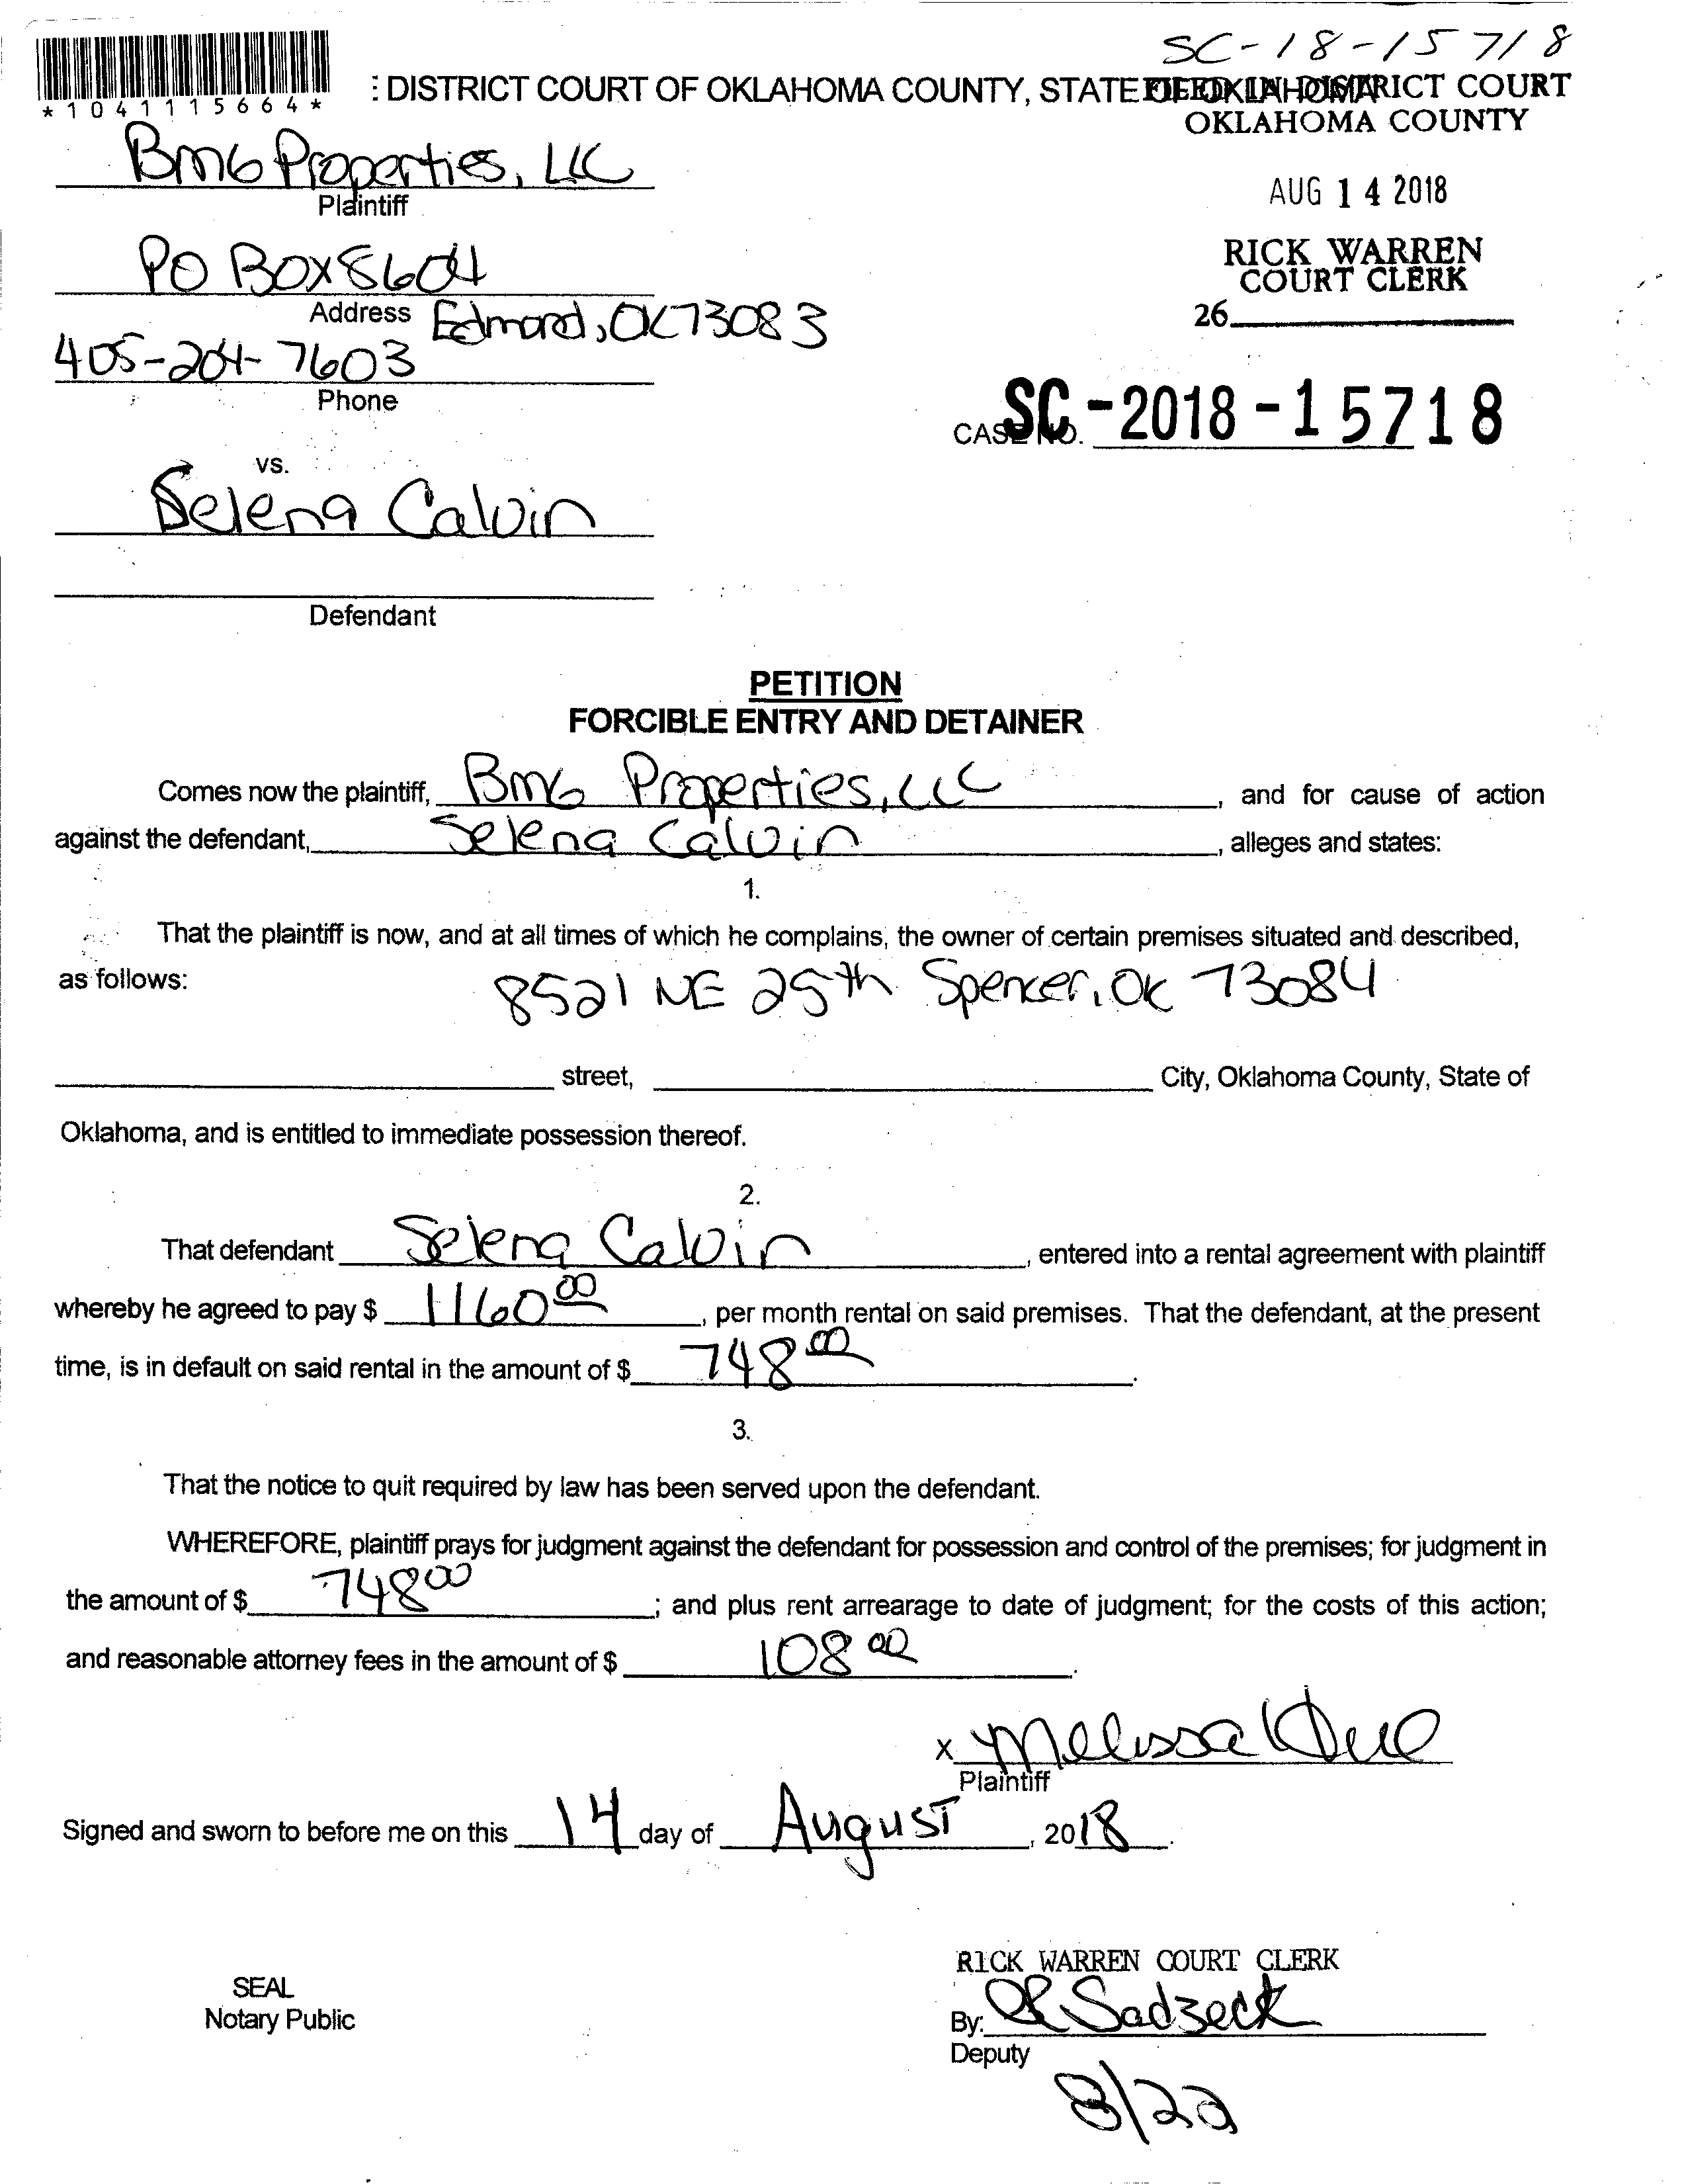 SC-18-15718
*1041115664*
: DISTRICT COURT OF OKLAHOMA COUNTY, STATE OF OKLAHOMA
FILED IN DISTRICT COURT
OKLAHOMA COUNTY
BMG Properties, LLC
Plaintiff
AUG 14 2018
PO BOX 8604
Address Edmond, OK 73083
RICK WARREN
COURT CLERK
26
405-204-7603
Phone
CASE NO. SC-2018-15718
vs.
Selena Calvin
Defendant
PETITION
FORCIBLE ENTRY AND DETAINER
Comes now the plaintiff, BMG Properties, LLC, and for cause of action
against the defendant, Selena Calvin, alleges and states:
1.
That the plaintiff is now, and at all times of which he complains, the owner of certain premises situated and described,
as follows: 8521 NE 25th Spencer, OK 73084
street, City, Oklahoma County, State of
Oklahoma, and is entitled to immediate possession thereof.
2.
That defendant Selena Calvin, entered into a rental agreement with plaintiff
whereby he agreed to pay $ 1160 00, per month rental on said premises. That the defendant, at the present
time, is in default on said rental in the amount of $ 748 00.
3.
That the notice to quit required by law has been served upon the defendant.
WHEREFORE, plaintiff prays for judgment against the defendant for possession and control of the premises; for judgment in
the amount of $ 748 00; and plus rent arrearage to date of judgment; for the costs of this action;
and reasonable attorney fees in the amount of $ 108 00.
x Melissa
Plaintiff
Signed and sworn to before me on this 14 day of August, 2018.
RICK WARREN COURT CLERK
SEAL
Notary Public
By: Sadzeck
Deputy
8/22